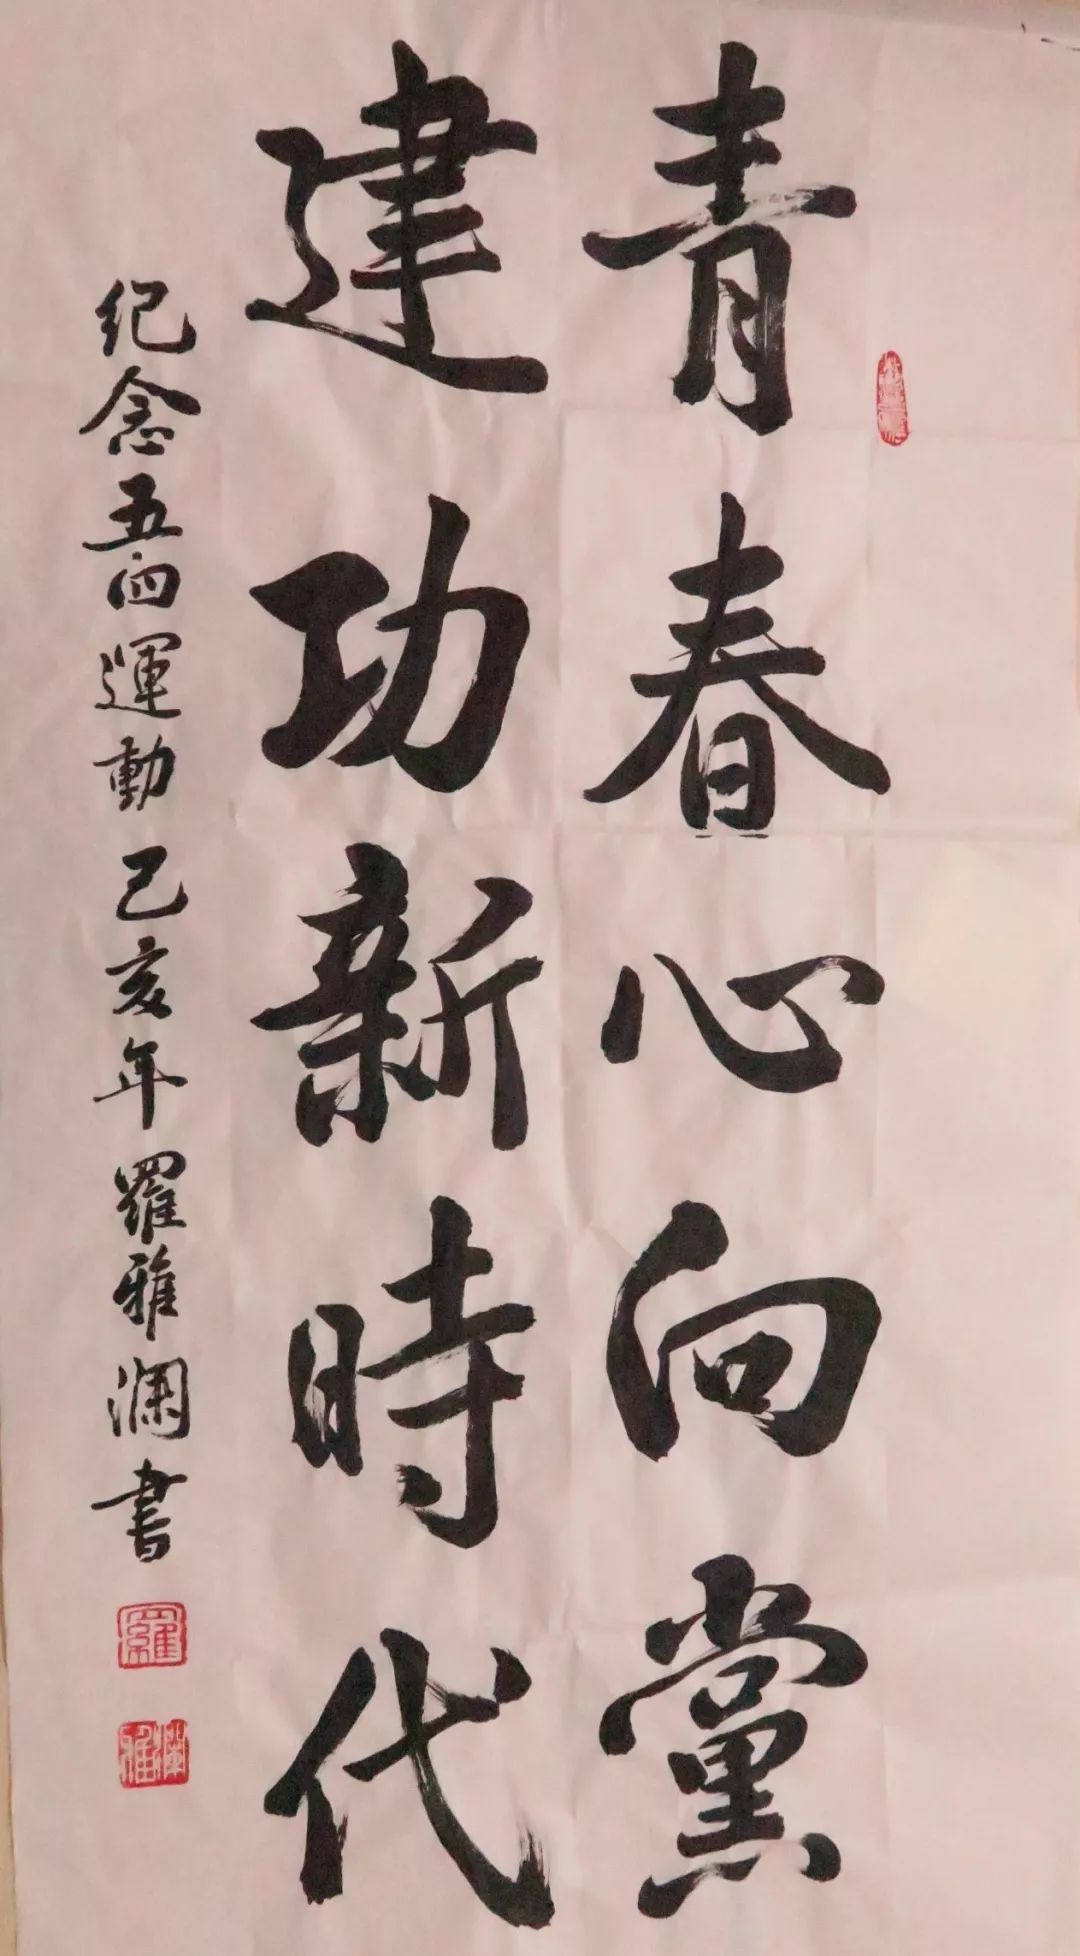 青春心向黨
建功新時代
纪念五四運動己亥年羅雅澜書
羅
雅澜